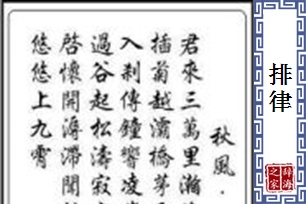 排律
辭海
之家
秋風·
君來三萬里瀚
插菊越灞橋茅
入剎傳鐘響凌
過谷起松濤寂
啓懷開溽滯聞
悠悠上九霄